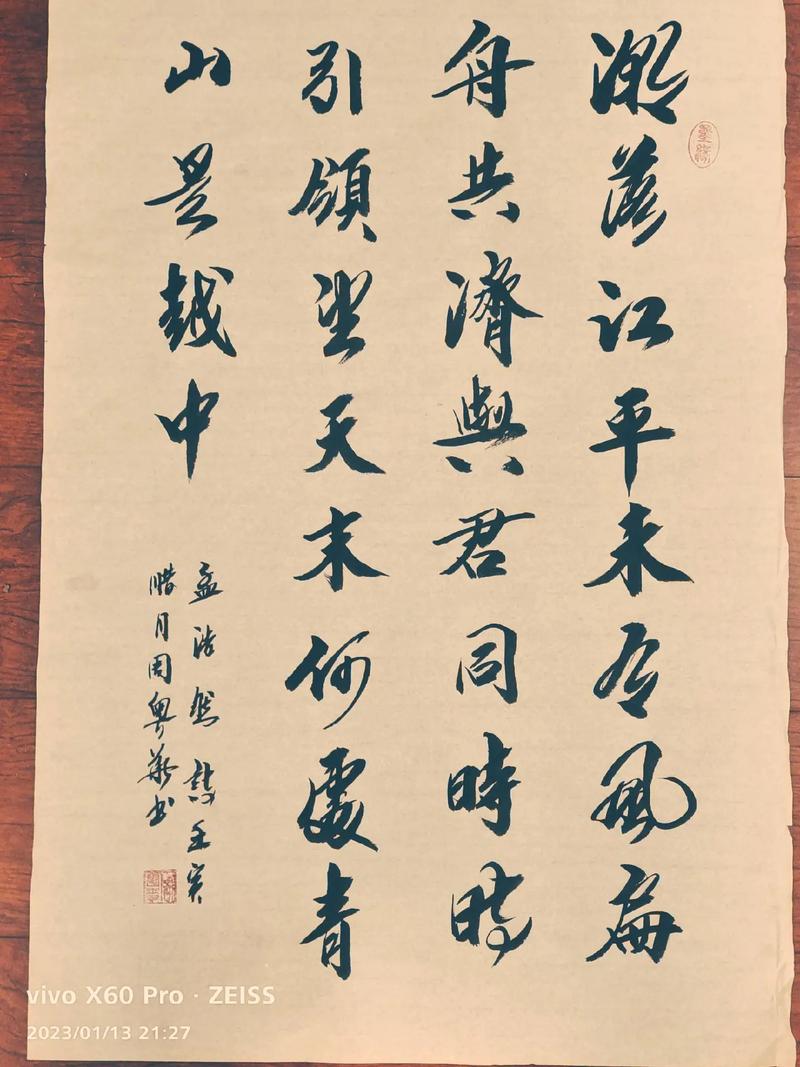 潮落江平未有風扁
舟共濟與君同時時
引領望天末何處青
山是越中
孟浩然詩壬寅
腊月周粤華书
vivo X60 Pro · ZEISS
2023/01/13 21:27